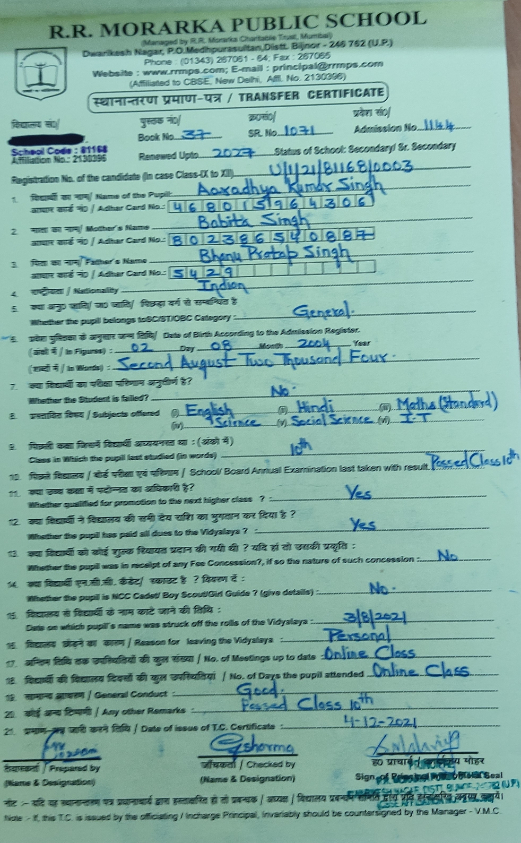 R.R. MORARKA PUBLIC SCHOOL
(Managed by R.R. Morarka Charitable Trust, Mumbai)
Dwarikesh Nagar, P.O.Medhpurasultan,Distt. Bijnor - 246 762 (U.P.)
Phone : (01343) 267061 - 64; Fax : 267065
Website : www.rrmps.com; E-mail : principal@rrmps.com
(Affiliated to CBSE, New Delhi, Affi. No. 2130396)
स्थानान्तरण प्रमाण-पत्र / TRANSFER CERTIFICATE
विद्यालय सं०/ पुस्तक सं०/ क्र०सं०/ प्रवेश सं०/
Book No. 37 SR. No. 1071 Admission No. 1144
School Code : 81168
Affiliation No.: 2130396 Renewed Upto 2027 Status of School: Secondary/ Sr. Secondary
Registration No. of the candidate (in case Class-IX to XII). U/1/21/81168/0003
1. विद्यार्थी का नाम/ Name of the Pupil: Aaradhya Kumar Singh
आधार कार्ड नं० / Adhar Card No.: 468015964306
2. माता का नाम/ Mother's Name Babita Singh
आधार कार्ड नं० / Adhar Card No.: 802386540887
3. पिता का नाम/ Father's Name Bhanu Pratap Singh
आधार कार्ड नं० / Adhar Card No.: 5429
4. राष्ट्रीयता / Nationality Indian
5. क्या अनु० जाति/ ज० जाति/ पिछड़ा वर्ग से सम्बन्धित है
Whether the pupil belongs toSC/ST/OBC Category : General.
6. प्रवेश पुस्तिका के अनुसार जन्म तिथि/ Date of Birth According to the Admission Register.
(अंकों में / In Figures) : 02 Day 08 Month 2004 Year
(शब्दों में / In Words) : Second August Two Thousand Four.
7. क्या विद्यार्थी का परीक्षा परिणाम अनुत्तीर्ण है?
Whether the Student is failed? No.
8. प्रस्तावित विषय / Subjects offered (i) English (ii) Hindi (iii) Maths (Standard)
(iv) Science (v) Social Science (vi) I.T
9. पिछली कक्षा जिसमें विद्यार्थी अध्ययनरत था : (अंकों में)
Class in Which pupil last studied (in words) 10th
10. पिछले विद्यालय / बोर्ड परीक्षा एवं परिणाम / School/ Board Annual Examination last taken with result. Passed Class 10th
11. क्या उच्च कक्षा में पदोन्नत का अधिकारी है?
Whether qualified for promotion to the next higher class ? : Yes
12. क्या विद्यार्थी ने विद्यालय की सभी देय राशि का भुगतान कर दिया है ?
Whether the pupil has paid all dues to the Vidyalaya ? : Yes
13. क्या विद्यार्थी को कोई शुल्क रियायत प्रदान की गयी थी ? यदि हां तो उसकी प्रकृति :
Whether the pupil was in receipt of any Fee Concession?, if so the nature of such concession : No
14. क्या विद्यार्थी एन.सी.सी. कैडेट/ स्काउट है ? विवरण दें :
Whether the pupil is NCC Cadet/ Boy Scout/Girl Guide ? (give details): No.
15. विद्यालय से विद्यार्थी के नाम काटे जाने की तिथि :
Date on which pupil's name was struck off the rolls of the Vidyalaya : 3/8/2021
16. विद्यालय छोड़ने का कारण / Reason for leaving the Vidyalaya Personal
17. अन्तिम तिथि तक उपस्थितियों की कुल संख्या / No. of Meetings up to date Online Class
18. विद्यार्थी की विद्यालय दिवसों की कुल उपस्थितियां / No. of Days the pupil attended Online Class
19. सामान्य आचरण / General Conduct : Good.
20. कोई अन्य टिप्पणी / Any other Remarks : Passed Class 10th
21. प्रमाण-पत्र जारी करने तिथि / Date of issue of T.C. Certificate : 4-12-2021
Sharma
/ Prepared by जाँचकर्ता / Checked by ह० प्राचार्य
(Name & Designation) (Name & Designation) Sign. of Principal Seal
नोट :- यदि यह स्थानान्तरण पत्र प्रधानाचार्य द्वारा हस्ताक्षरित हो तो प्रबन्धक / अध्यक्ष / विद्यालय प्रबन्धन समिति द्वारा
Note :- If, this T.C. is issued by the officiating / Incharge Principal, Invariably should be countersigned by the Manager - V.M.C.